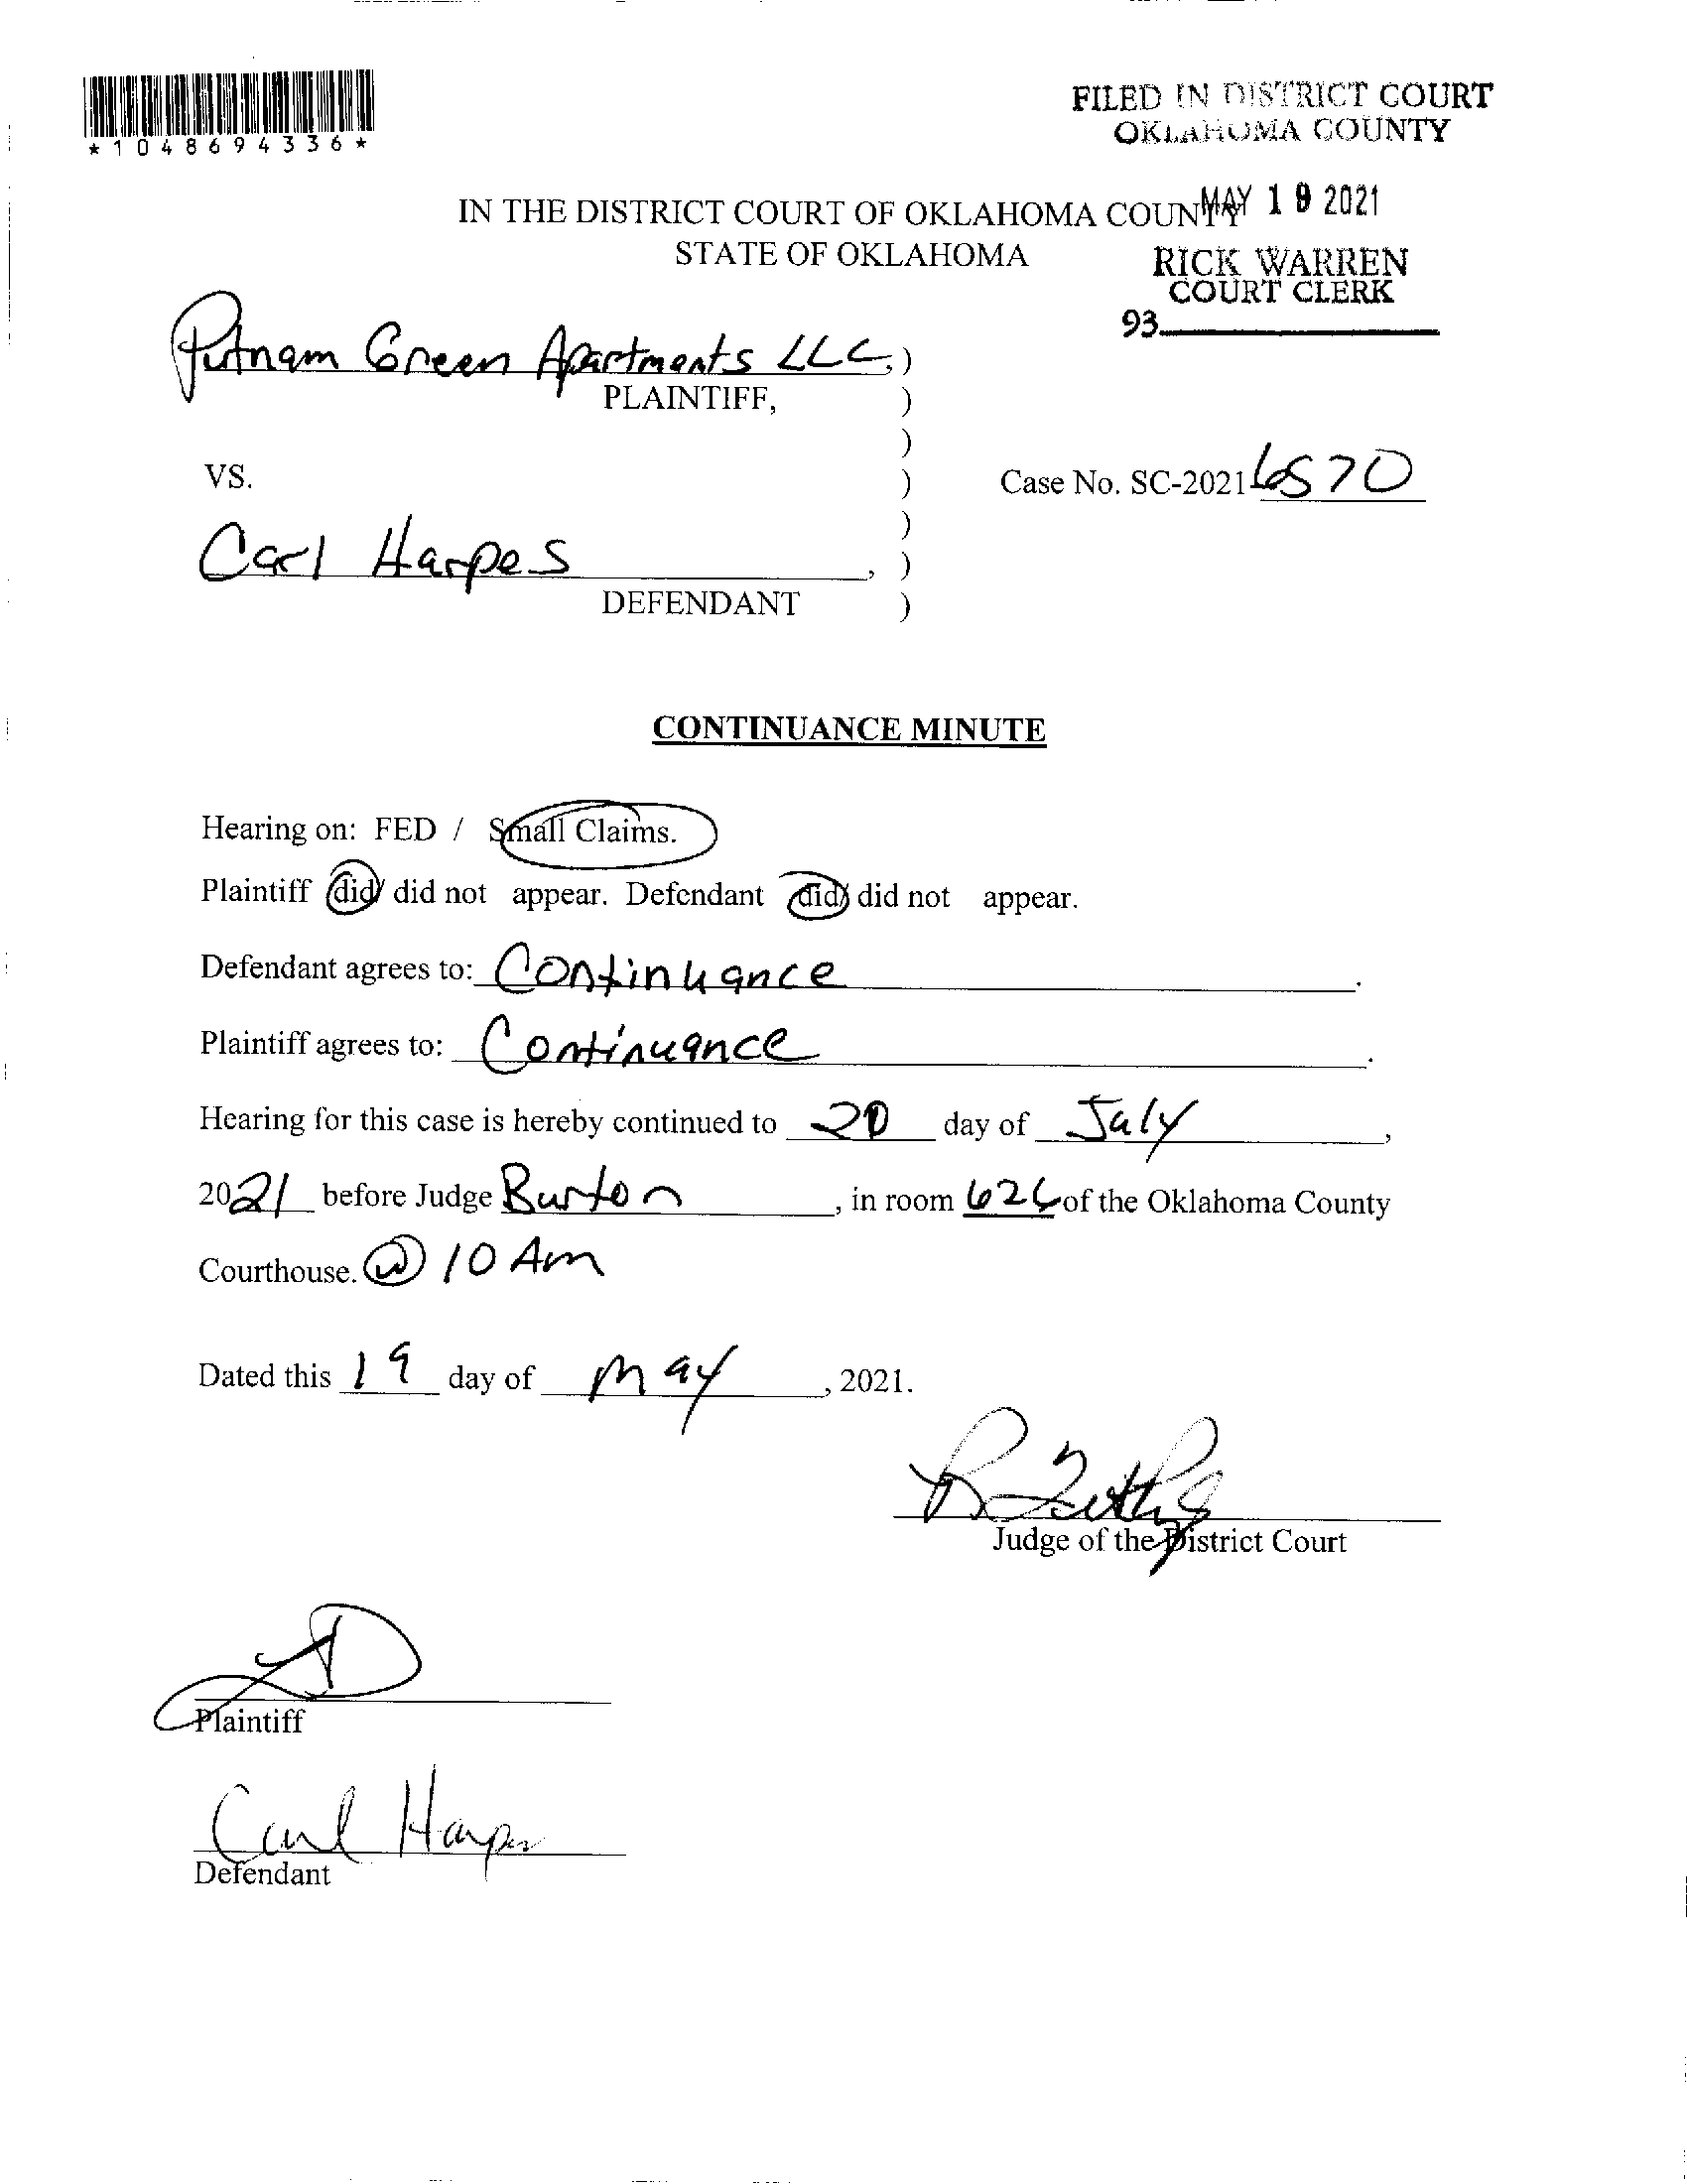 *1048694336*
FILED IN DISTRICT COURT
OKLAHOMA COUNTY
MAY 19 2021
IN THE DISTRICT COURT OF OKLAHOMA COUNTY
STATE OF OKLAHOMA
RICK WARREN
COURT CLERK
93
Putnam Green Apartments LLC, )
PLAINTIFF, )
)
VS. )
Case No. SC-2021-6570
)
Carl Harpes, )
DEFENDANT )
CONTINUANCE MINUTE
Hearing on: FED / Small Claims.
Plaintiff did/ did not appear. Defendant did/ did not appear.
Defendant agrees to: Continuance.
Plaintiff agrees to: Continuance.
Hearing for this case is hereby continued to 20 day of July,
2021 before Judge Burton, in room 626 of the Oklahoma County
Courthouse. @ 10 Am
Dated this 19 day of May, 2021.
Judge of the District Court
Plaintiff
Carl Harper
Defendant